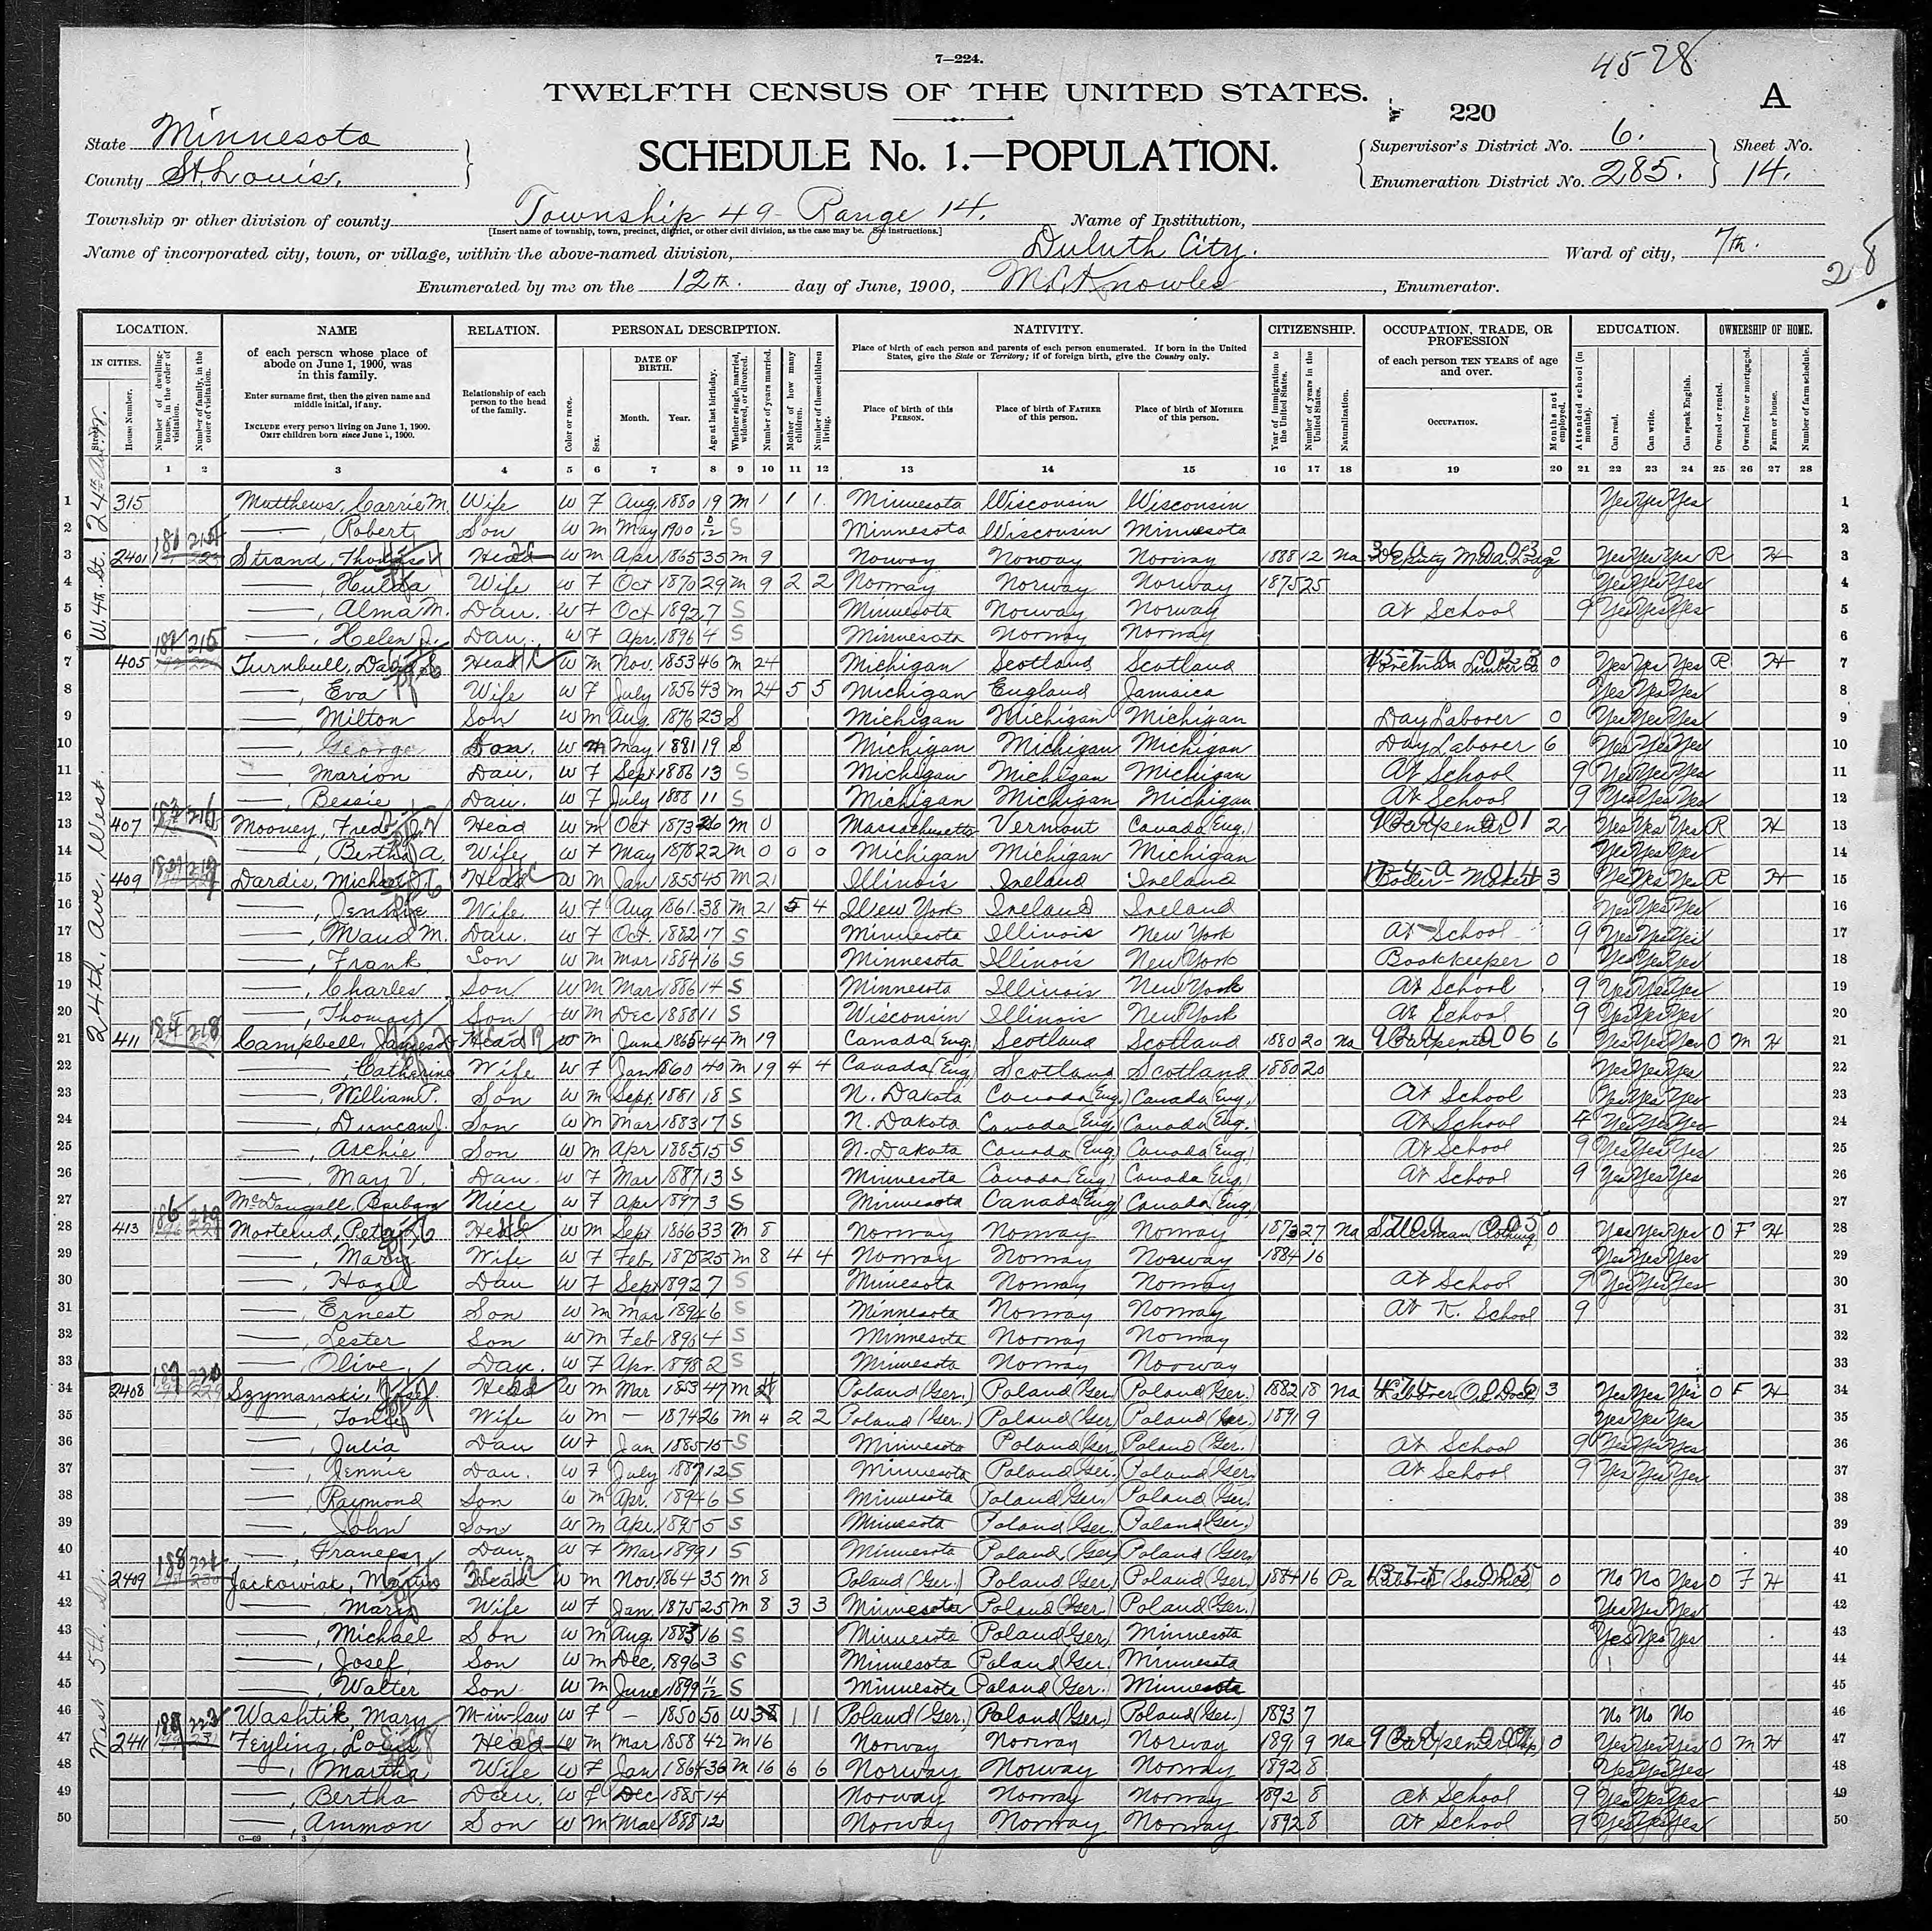 7—224.
4528
TWELFTH CENSUS OF THE UNITED STATES.
220
A
SCHEDULE No. 1.—POPULATION.
State Minnesota
County St. Louis.
Supervisor's District No. 6.
Enumeration District No. 285.
Sheet No. 14.
Township or other division of county Township 49 Range 14.
[Insert name of township, town, precinct, district, or other civil division, as the case may be. See instructions.]
Name of Institution,
Name of incorporated city, town, or village, within the above-named division, Duluth City.
Ward of city, 7th.
28
Enumerated by me on the 12th. day of June, 1900, M.C. Knowles, Enumerator.
LOCATION. NAME RELATION. PERSONAL DESCRIPTION. NATIVITY. CITIZENSHIP. OCCUPATION, TRADE, OR PROFESSION EDUCATION. OWNERSHIP OF HOME.
IN CITIES.
Street.
House Number.
Number of dwelling-house, in the order of visitation.
Number of family, in the order of visitation.
of each person whose place of abode on June 1, 1900, was in this family.
Enter surname first, then the given name and middle initial, if any.
INCLUDE every person living on June 1, 1900.
OMIT children born since June 1, 1900.
Relationship of each person to the head of the family.
Color or race.
Sex.
DATE OF BIRTH.
Month. Year.
Age at last birthday.
Whether single, married, widowed, or divorced.
Number of years married.
Mother of how many children.
Number of these children living.
Place of birth of each person and parents of each person enumerated. If born in the United States, give the State or Territory; if of foreign birth, give the Country only.
Place of birth of this PERSON.
Place of birth of FATHER of this person.
Place of birth of MOTHER of this person.
Year of immigration to the United States.
Number of years in the United States.
Naturalization.
of each person TEN YEARS of age and over.
OCCUPATION.
Months not employed.
Attended school (in months).
Can read.
Can write.
Can speak English.
Owned or rented.
Owned free or mortgaged.
Farm or house.
Number of farm schedule.
1 2 3 4 5 6 7 8 9 10 11 12 13 14 15 16 17 18 19 20 21 22 23 24 25 26 27 28
24th Av. W.
W. 4th St.
24th, Ave, West.
West 5th. St.
1 315 Matthews, Carrie M. Wife W F Aug 1880 19 M 1 1 1 Minnesota Wisconsin Wisconsin Yes Yes Yes 1
2 ——, Robert Son W M May 1900 0/12 S Minnesota Wisconsin Minnesota 2
3 2401 Strand, Thomas Head W M Apr 1865 35 M 9 Norway Norway Norway 1888 12 Na Deputy 0 Yes Yes Yes R H 3
4 ——, Hulda Wife W F Oct 1870 29 M 9 2 2 Norway Norway Norway 1875 25 Yes Yes Yes 4
5 ——, Alma M. Dau. W F Oct 1892 7 S Minnesota Norway Norway At School 9 Yes Yes Yes 5
6 ——, Helen J. Dau. W F Apr. 1896 4 S Minnesota Norway Norway 6
7 405 Turnbull, David Head W M Nov. 1853 46 M 24 Michigan Scotland Scotland Foreman Lumber Co 0 Yes Yes Yes R H 7
8 ——, Eva Wife W F July 1856 43 M 24 5 5 Michigan England Jamaica Yes Yes Yes 8
9 ——, Milton Son W M Aug. 1876 23 S Michigan Michigan Michigan Day Laborer 0 Yes Yes Yes 9
10 ——, George W M May 1881 19 S Michigan Michigan Michigan Day Laborer 6 Yes Yes Yes 10
11 —— Marion Dau. W F Sept 1886 13 S Michigan Michigan Michigan At School 9 Yes Yes Yes 11
12 ——, Bessie Dau. W F July 1888 11 S Michigan Michigan Michigan At School 9 Yes Yes Yes 12
13 407 Mooney, Fred Head W M Oct 1873 26 M 0 Massachusetts Vermont Canada (Eng.) Carpenter 2 Yes Yes Yes R H 13
14 ——, Bertha A. Wife W F May 1878 22 M 0 0 0 Michigan Michigan Michigan Yes Yes Yes 14
15 409 Dardis, Michael Head W M Jan 1855 45 M 21 Illinois Ireland Ireland Boiler-Maker 3 Yes Yes Yes R H 15
16 ——, Jennie Wife W F Aug 1861 38 M 21 5 4 New York Ireland Ireland Yes Yes Yes 16
17 ——, Maud M. Dau. W F Oct. 1882 17 S Minnesota Illinois New York At School 9 Yes Yes Yes 17
18 ——, Frank Son W M Mar 1884 16 S Minnesota Illinois New York Bookkeeper 0 Yes Yes Yes 18
19 ——, Charles Son W M Mar 1886 14 S Minnesota Illinois New York At School 9 Yes Yes Yes 19
20 ——, Thomas Son W M Dec 1888 11 S Wisconsin Illinois New York At School 9 Yes Yes Yes 20
21 411 Campbell, James Head W M June 44 M 19 Canada (Eng.) Scotland Scotland 1880 20 Na Carpenter 6 Yes Yes Yes O M H 21
22 ——, Catherine Wife W F Jan 1860 40 M 19 4 4 Canada (Eng) Scotland Scotland 1880 20 Yes Yes Yes 22
23 ——, William P. Son W M Sept. 1881 18 S N. Dakota Canada (Eng.) Canada (Eng.) At School Yes Yes Yes 23
24 ——, Duncan J. Son W M Mar 1883 17 S N. Dakota Canada (Eng.) Canada (Eng.) At School 4 Yes Yes Yes 24
25 ——, Archie Son W M Apr 1885 15 S N. Dakota Canada (Eng) Canada (Eng.) At School 9 Yes Yes Yes 25
26 ——, May V. Dau. W F Mar 1887 13 S Minnesota Canada (Eng) Canada (Eng.) At School 9 Yes Yes Yes 26
27 McDougall, Barbara Niece W F Apr 1897 3 S Minnesota Canada (Eng) Canada (Eng) 27
28 413 Morterud, Peter Head W M Sept 1866 33 M 8 Norway Norway Norway 1873 27 Na Salesman (Clothing) 0 Yes Yes Yes O F H 28
29 ——, Mary Wife W F Feb. 1875 25 M 8 4 4 Norway Norway Norway 1884 16 Yes Yes Yes 29
30 ——, Hazel Dau W F Sept 1892 7 S Minnesota Norway Norway At School 9 Yes Yes Yes 30
31 ——, Ernest Son W M Mar. 1894 6 S Minnesota Norway Norway At K. School 9 31
32 ——, Lester Son W M Feb 1896 4 S Minnesota Norway Norway 32
33 ——, Olive Dau. W F Apr. 1898 2 S Minnesota Norway Norway 33
34 2408 Szymanski, Josef Head W M Mar 1853 47 M 4 Poland (Ger.) Poland (Ger.) Poland (Ger.) 1882 18 Na Laborer (Ore Dock) 3 Yes Yes Yes O F H 34
35 ——, Wife W M — 1874 26 M 4 2 2 Poland (Ger.) Poland (Ger) Poland (Ger.) 1891 9 Yes Yes Yes 35
36 ——, Julia Dau W F Jan 1885 15 S Minnesota Poland (Ger.) Poland (Ger.) At School 9 Yes Yes Yes 36
37 ——, Jennie Dau. W F July 1887 12 S Minnesota Poland (Ger.) Poland (Ger.) At School 9 Yes Yes Yes 37
38 ——, Raymond Son W M Apr. 1894 6 S Minnesota Poland (Ger.) Poland (Ger.) 38
39 ——, John Son W M Apr. 1895 5 S Minnesota Poland (Ger.) Poland (Ger.) 39
40 ——, Frances Dau W F Mar 1899 1 S Minnesota Poland (Ger) Poland (Ger) 40
41 2409 Jackowiak, Martin Head W M Nov. 1864 35 M 8 Poland (Ger.) Poland (Ger.) Poland (Ger.) 1884 16 Pa Laborer (Saw Mill) 0 No No Yes O F H 41
42 ——, Mary Wife W F Jan. 1875 25 M 8 3 3 Minnesota Poland (Ger.) Poland (Ger.) Yes Yes Yes 42
43 ——, Michael Son W M Aug. 1883 16 S Minnesota Poland (Ger) Minnesota Yes Yes Yes 43
44 ——, Josef Son W M Dec. 1896 3 S Minnesota Poland (Ger. Minnesota 44
45 ——, Walter Son W M June 1899 11/12 S Minnesota Poland (Ger.) Minnesota 45
46 Washtik Mary M-in-law W F — 1850 50 W 1 1 Poland (Ger.) Poland (Ger.) Poland (Ger.) 1893 7 No No No 46
47 2411 Feyling, Louis Head W M Mar 1858 42 M 16 Norway Norway Norway 1891 9 Na Carpenter 0 Yes Yes Yes O M H 47
48 ——, Martha Wife W F Jan 1864 36 M 16 6 6 Norway Norway Norway 1892 8 Yes Yes Yes 48
49 ——, Bertha Dau. W F Dec 1885 14 Norway Norway Norway 1892 8 At School 9 Yes Yes Yes 49
50 ——, Ammon Son W M Mar 1888 12 Norway Norway Norway 1892 8 At School 9 Yes Yes Yes 50
C—69